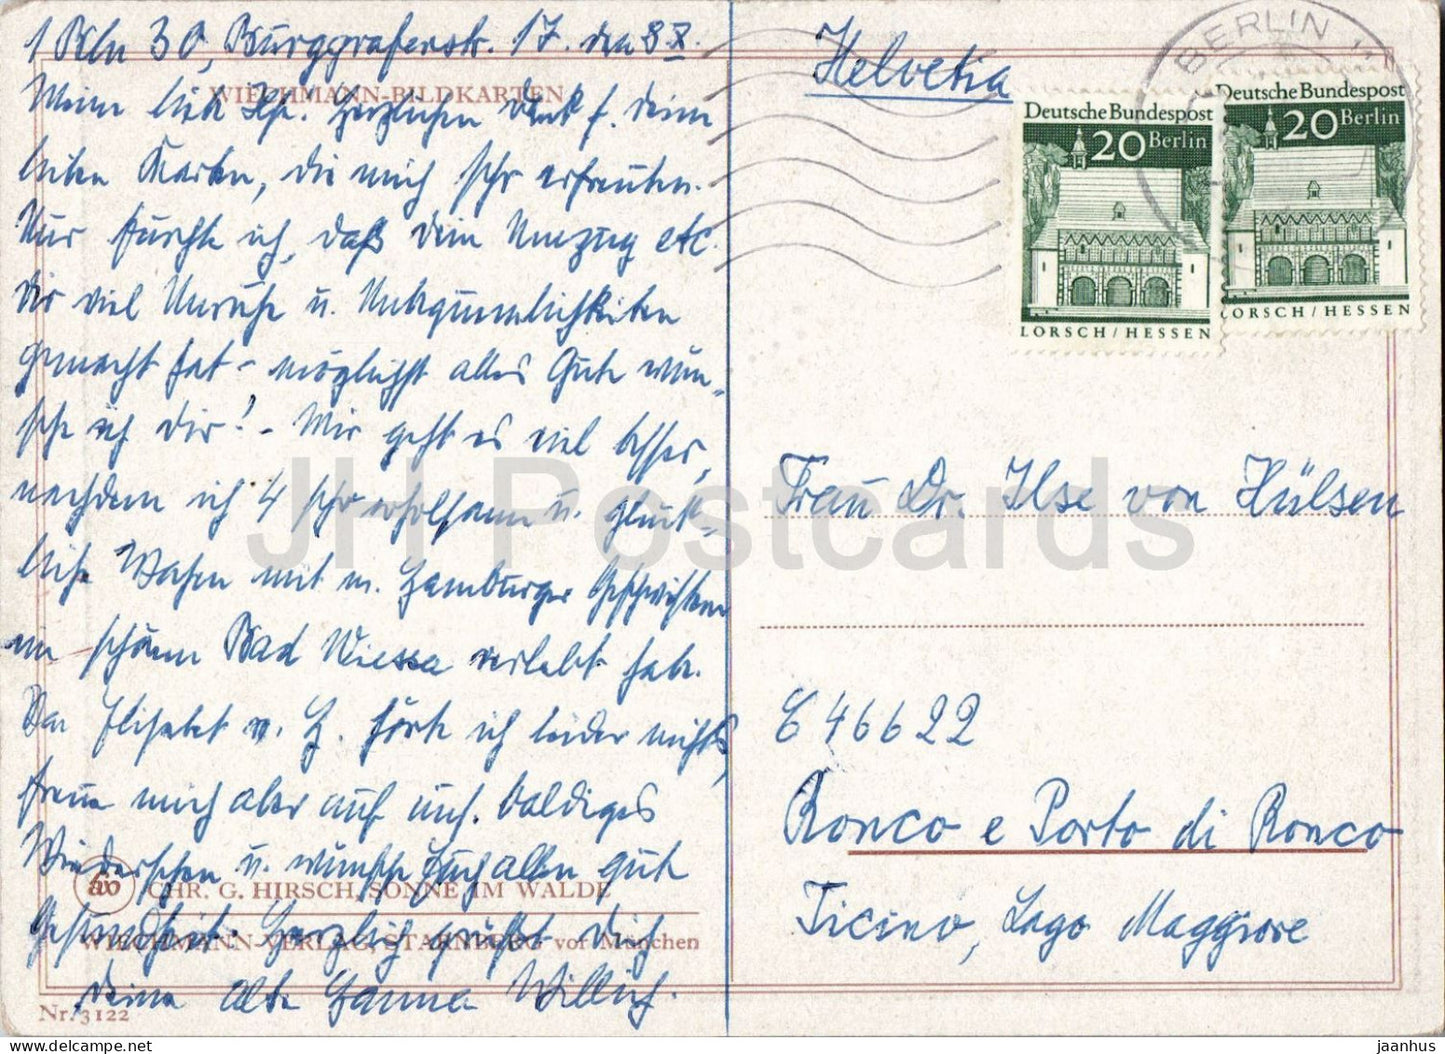 1 Bln 30, Burggrafenstr. 17. den 8 X.
WIECHMANN-BILDKARTEN
Meine liebe Ilse. Herzlichen Dank f. deine
lieben Karten, die mich sehr erfreuten.
Nur fürchte ich, daß dein Umzug etc.
dir viel Unruhe u. Unbequemlichkeiten
gemacht hat - möglichst alles Gute wün-
sche ich dir! - Mir geht es viel besser,
nachdem ich 4 sehr erholsame u. glück-
liche Wochen mit m. Hamburger Geschwistern
im schönen Bad Wiessee verlebt habe.
Von Elisabet v. H. hörte ich leider nichts,
freue mich aber auf baldiges
Wiedersehen u. wünsche Euch allen gute
CHR. G. HIRSCH, SONNE IM WALDE
Gesundheit. Herzlich grüßt Dich
WIECHMANN-VERLAG, STARNBERG vor München
deine alte Hanna Willich.
Nr. 3122
Helvetia
BERLIN
Deutsche Bundespost
20 Berlin
LORSCH/HESSEN
Deutsche Bundespost
20 Berlin
LORSCH/HESSEN
Frau Dr. Ilse von Hülsen
6 46622
Ronco e Porto di Ronco
Ticino, Lago Maggiore
JH Postcards
www.delcampe.net
jaanhus